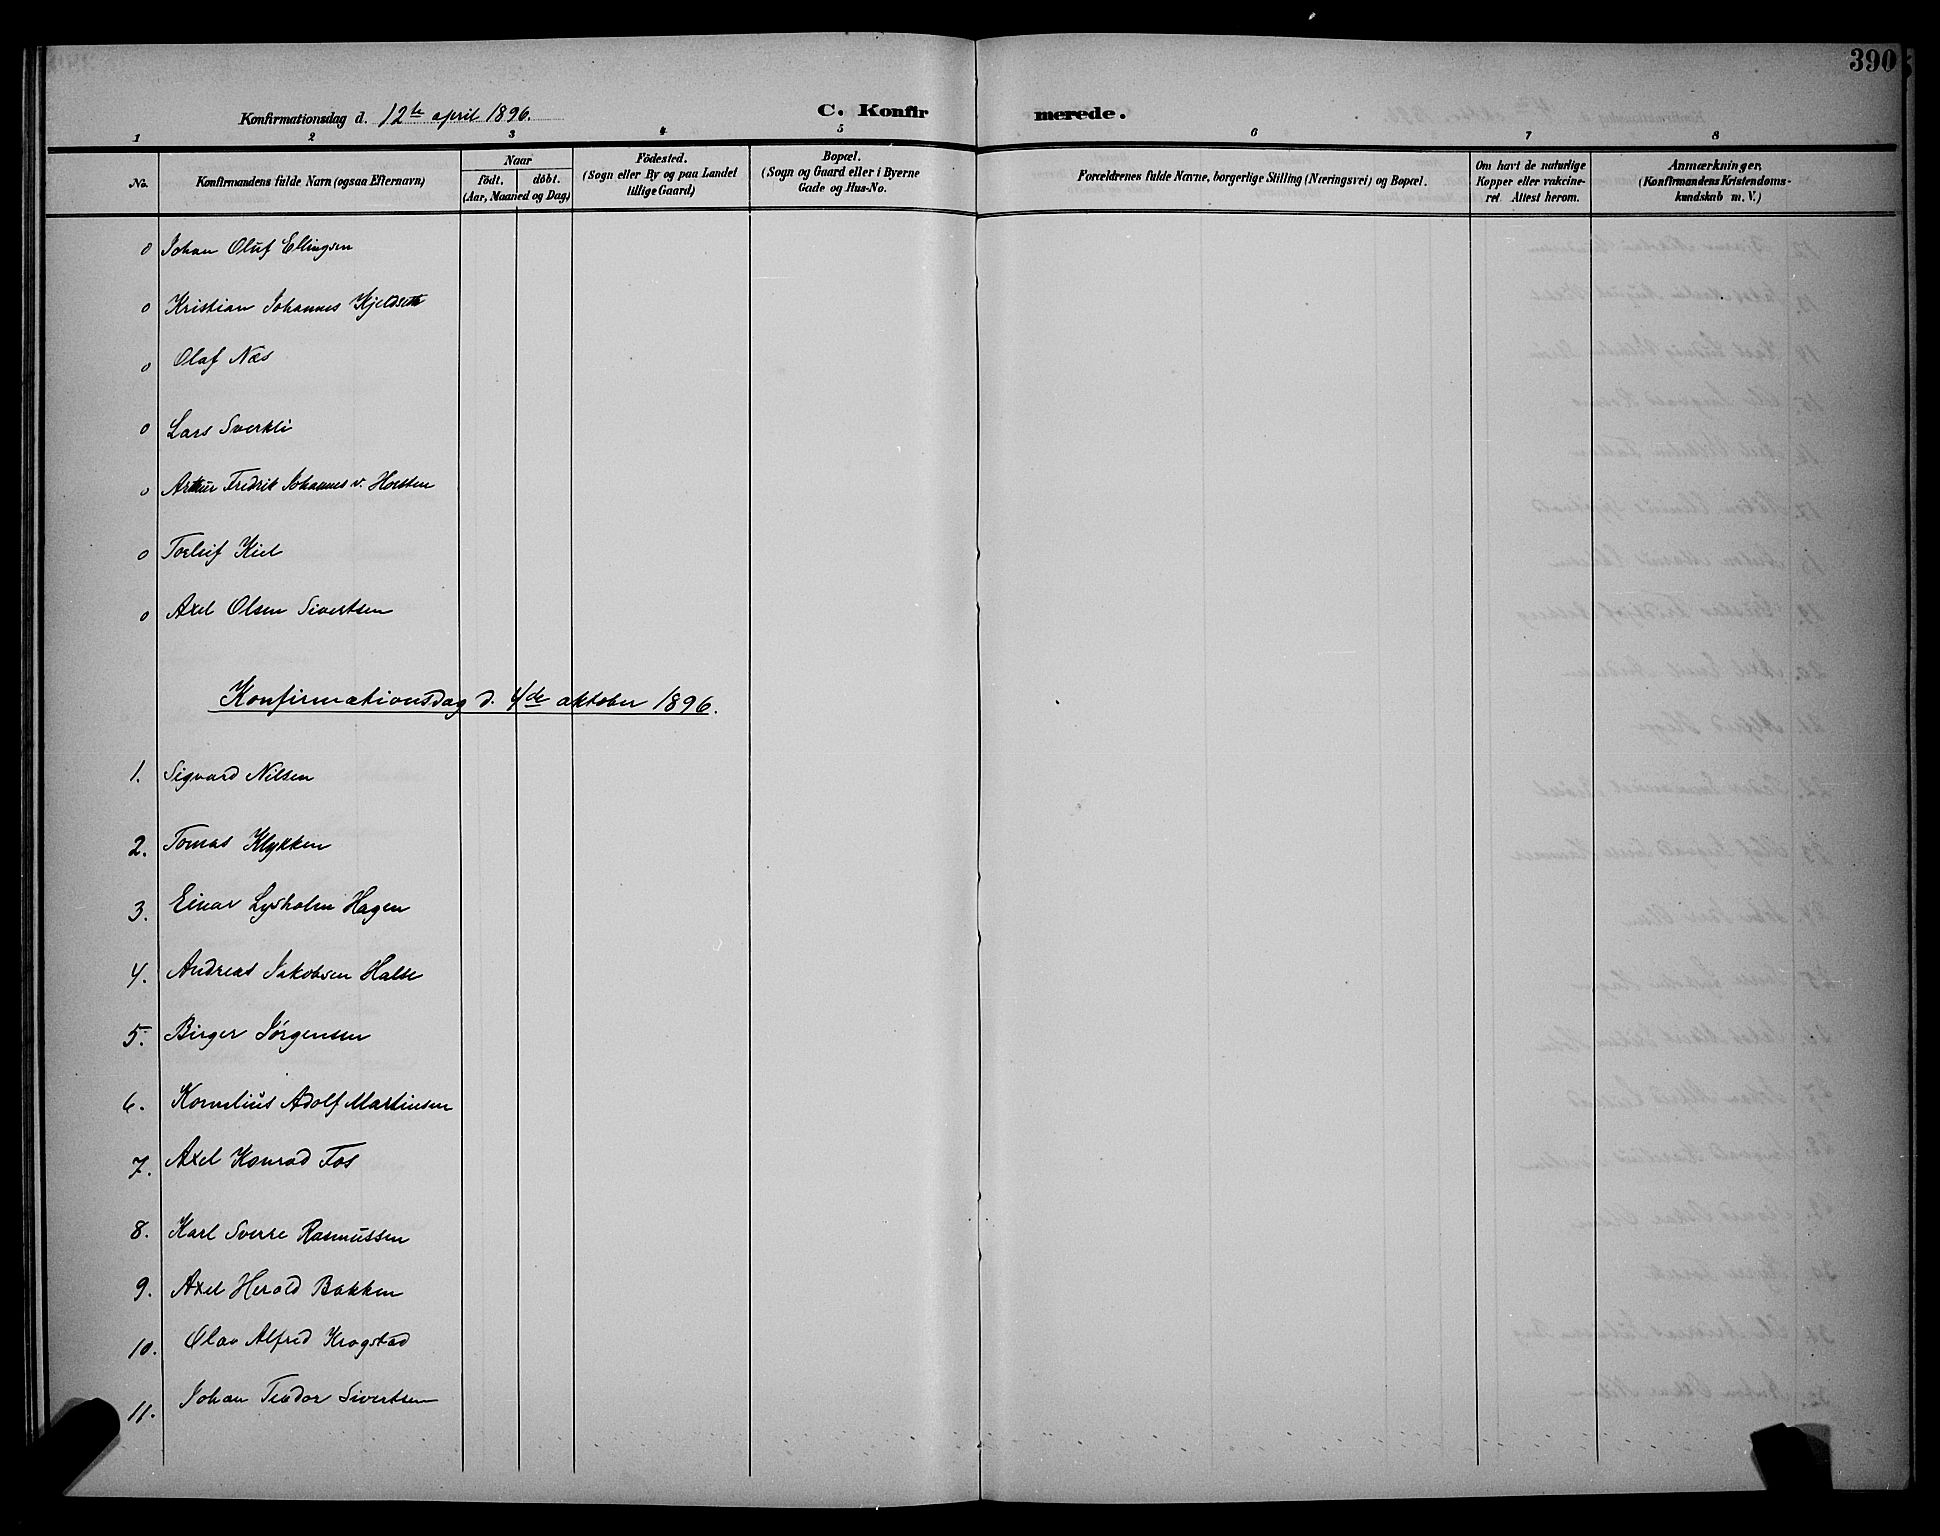 390
Konfirmationsdag d. 12te april 1896.
C. Konfirmerede.
1 2 3 4 5 6 7 8
No.
Konfirmandens fulde Navn (ogsaa Efternavn)
Naar
födt. döbt.
(Aar, Maaned og Dag)
Födested.
(Sogn eller By og paa Landet
tillige Gaard)
Bopæl.
(Sogn og Gaard eller i Byerne
Gade og Hus-No.
Forældrenes fulde Navne, borgerlige Stilling (Næringsvei) og Bopæl.
Om havt de naturlige
Kopper eller vakcine-
ret. Attest herom.
Anmærkninger,
(Konfirmandens Kristendoms-
kundskab m. V.)
0 Johan Oluf Ellingsen
0 Kristian Johannes Kjeldseth
0 Olaf Næs
0 Lars Sverkli
0 Arthur Fredrik Johannes v. Horsten
0 Torleif Kiel
0 Axel Olsen Sivertsen
Konfirmationsdag d. 4de oktober 1896.
1. Sigvard Nilsen
2. Tomas Klykken
3. Einar Lysholm Hagen
4. Andreas Jakobsen Halse
5. Birger Jørgensen
6. Kornelius Adolf Martinsen
7. Axel Konrad Fos
8. Karl Sverre Rasmussen
9. Axel Herold Bakken
10. Olav Alfred Krogstad
11. Johan Teodor Sivertsen